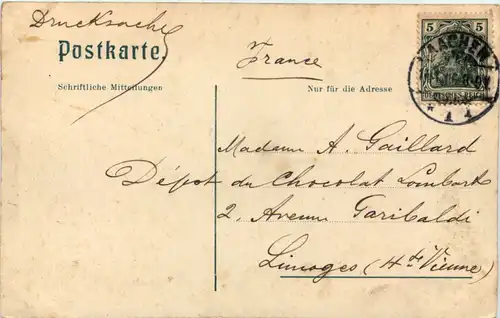 Drucksache
Postkarte.
France
Schriftliche Mitteilungen
Nur für die Adresse
5 5
AACHEN
* 1 1
Madame A. Gaillard
Dépôt du Chocolat Lombart
2. Avenue Garibaldi
Limoges (Hte Vienne)